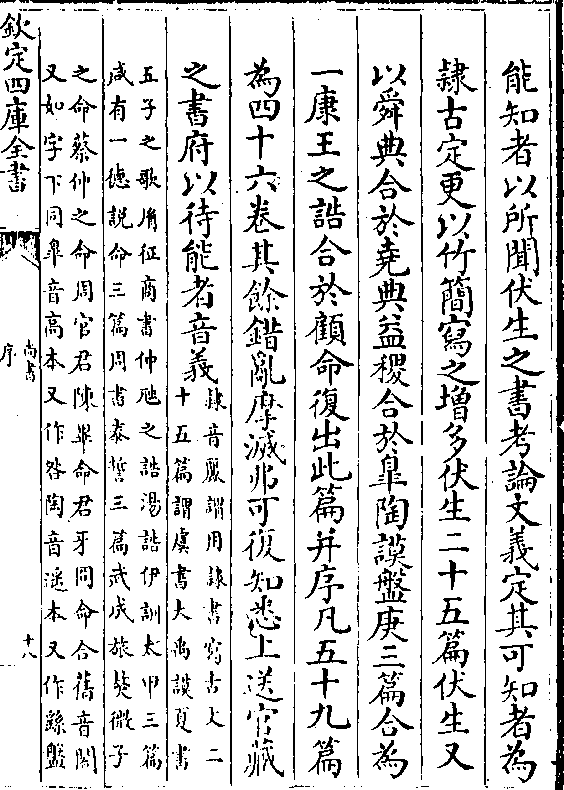 能知者以所聞伏生之書考論文義定其可知者為
隷古定更以竹簡寫之增多伏生二十五篇伏生又
以舜典合於堯典益稷合於臯陶謨盤庚三篇合為
一康王之誥合於顧命復出此篇并序凡五十九篇
為四十六卷其餘錯亂摩滅弗可復知悉上送官藏
之書府以待能者音義
隷音麗謂用隷書寫古文二
十五篇謂虞書大禹謨夏書
五子之歌胤征商書仲虺之誥湯誥伊訓太甲三篇
咸有一德説命三篇周書泰誓三篇武成旅獒微子
之命蔡仲之命周官君陳畢命君牙冏命合舊音閤
又如字下同臯音高本又作咎陶音遥本又作繇盤
欽定四庫全書
尚書
序
十八